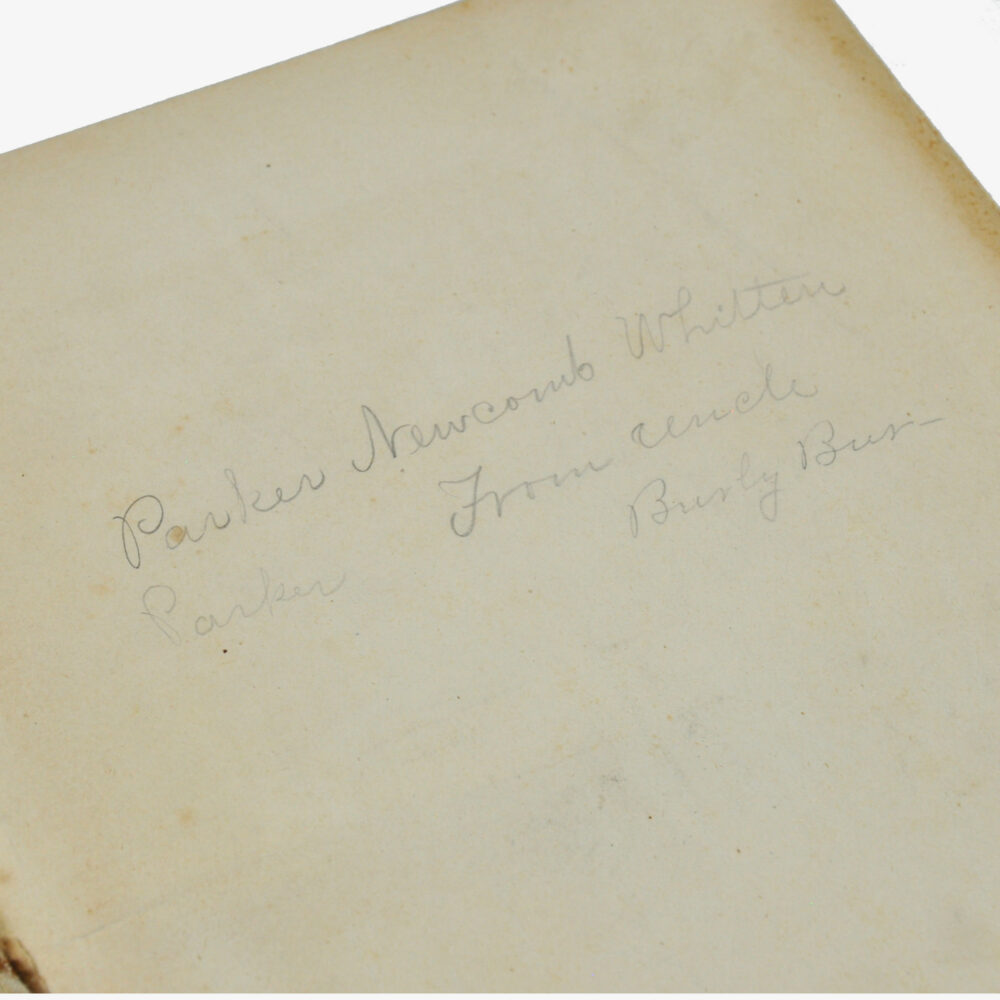 Parker Newcomb Whitten
From uncle
Burly Bur-
Parker